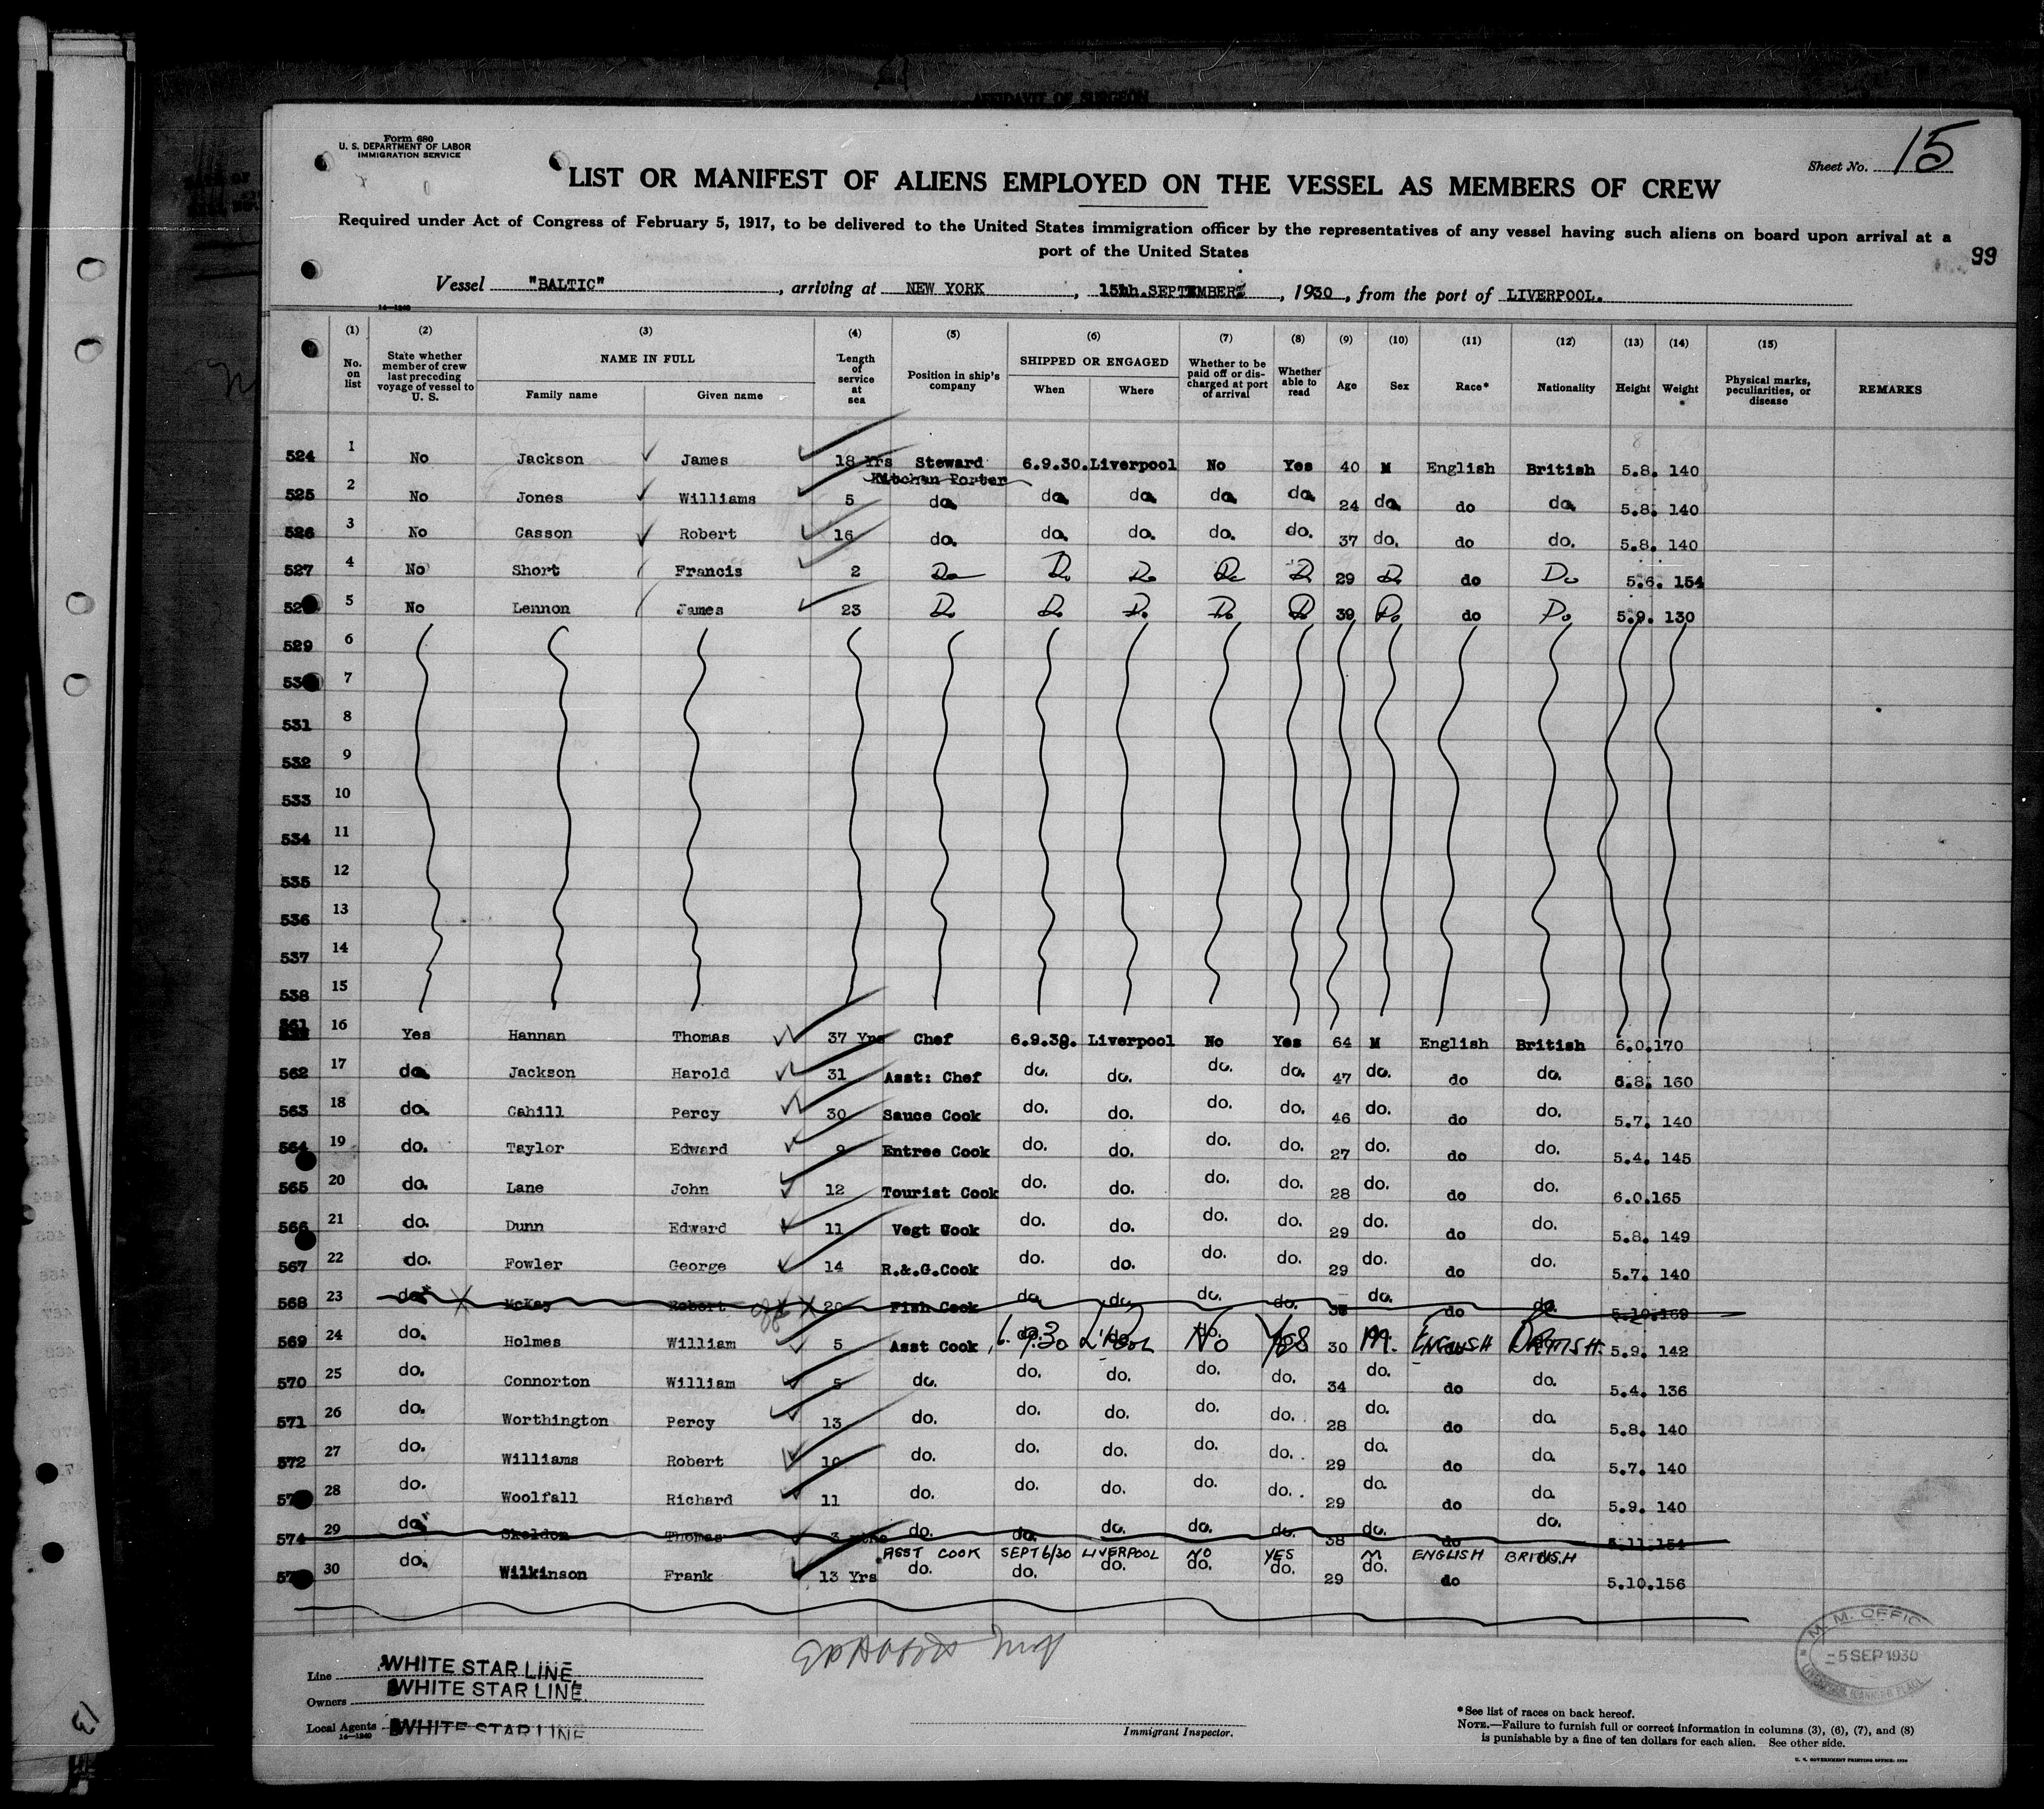 AFFIDAVIT OF SURGEON
Form 680
U. S. DEPARTMENT OF LABOR
IMMIGRATION SERVICE
Sheet No. 15
LIST OR MANIFEST OF ALIENS EMPLOYED ON THE VESSEL AS MEMBERS OF CREW
Required under Act of Congress of February 5, 1917, to be delivered to the United States immigration officer by the representatives of any vessel having such aliens on board upon arrival at a
port of the United States
99
Vessel "BALTIC", arriving at NEW YORK, 15th.SEPTEMBER, 1930, from the port of LIVERPOOL.
14—1240
(1) (2) (3) (4) (5) (6) (7) (8) (9) (10) (11) (12) (13) (14) (15)
No. on list
State whether member of crew last preceding voyage of vessel to U. S.
NAME IN FULL
Family name
Given name
Length of service at sea
Position in ship's company
SHIPPED OR ENGAGED
When
Where
Whether to be paid off or discharged at port of arrival
Whether able to read
Age
Sex
Race*
Nationality
Height
Weight
Physical marks, peculiarities, or disease
REMARKS
524 1 No Jackson James 18 Yrs Steward 6.9.30. Liverpool No Yes 40 M English British 5.8. 140
Kitchen Porter
525 2 No Jones Williams 5 do. do. do. do. do. 24 do. do do. 5.8. 140
526 3 No Casson Robert 16 do. do. do. do. do. 37 do. do do. 5.8. 140
527 4 No Short Francis 2 Do Do Do Do Do 29 Do do Do 5.6. 154
528 5 No Lennon James 23 Do Do Do Do Do 39 Do do Do 5.9. 130
529 6
530 7
531 8
532 9
533 10
534 11
535 12
536 13
537 14
538 15
561 16 Yes Hannan Thomas 37 Yrs Chef 6.9.30. Liverpool No Yes 64 M English British 6.0.170
562 17 do. Jackson Harold 31 Asst: Chef do. do. do. do. 47 do. do do. 5.8. 160
563 18 do. Cahill Percy 30 Sauce Cook do. do. do. do. 46 do. do do. 5.7. 140
564 19 do. Taylor Edward 9 Entree Cook do. do. do. do. 27 do. do do. 5.4. 145
565 20 do. Lane John 12 Tourist Cook do. do. do. do. 28 do. do do. 6.0.165
566 21 do. Dunn Edward 11 Vegt Cook do. do. do. do. 29 do. do do. 5.8. 149
567 22 do. Fowler George 14 R.&.G.Cook do. do. do. do. 29 do. do do. 5.7. 140
568 23 do. McKay Robert 20 Fish Cook do. do. do. do. do. do do. 5.10.169
569 24 do. Holmes William 5 Asst Cook 6.9.30 L'Pool No Yes 30 M. ENGLISH BRITISH. 5.9. 142
570 25 do. Connorton William 5 do. do. do. do. do. 34 do. do do. 5.4. 136
571 26 do. Worthington Percy 13 do. do. do. do. do. 28 do. do do. 5.8. 140
572 27 do. Williams Robert 10 do. do. do. do. do. 29 do. do do. 5.7. 140
573 28 do. Woolfall Richard 11 do. do. do. do. do. 29 do. do do. 5.9. 140
574 29 do. Skeldon Thomas 3 do. do. do. do. do. 38 do. do do. 5.11.154
ASST COOK SEPT 6/30 LIVERPOOL NO YES M ENGLISH BRITISH
575 30 do. Wilkinson Frank 13 Yrs do. do. do. do. do. 29 do. do do. 5.10.156
Line WHITE STAR LINE.
Owners WHITE STAR LINE.
Local Agents WHITE STAR LINE
14—1240
Immigrant Inspector.
M. M. OFFIC
-5 SEP 1930
*See list of races on back hereof.
NOTE.—Failure to furnish full or correct information in columns (3), (6), (7), and (8)
is punishable by a fine of ten dollars for each alien. See other side.
U. S. GOVERNMENT PRINTING OFFICE: 1930
13